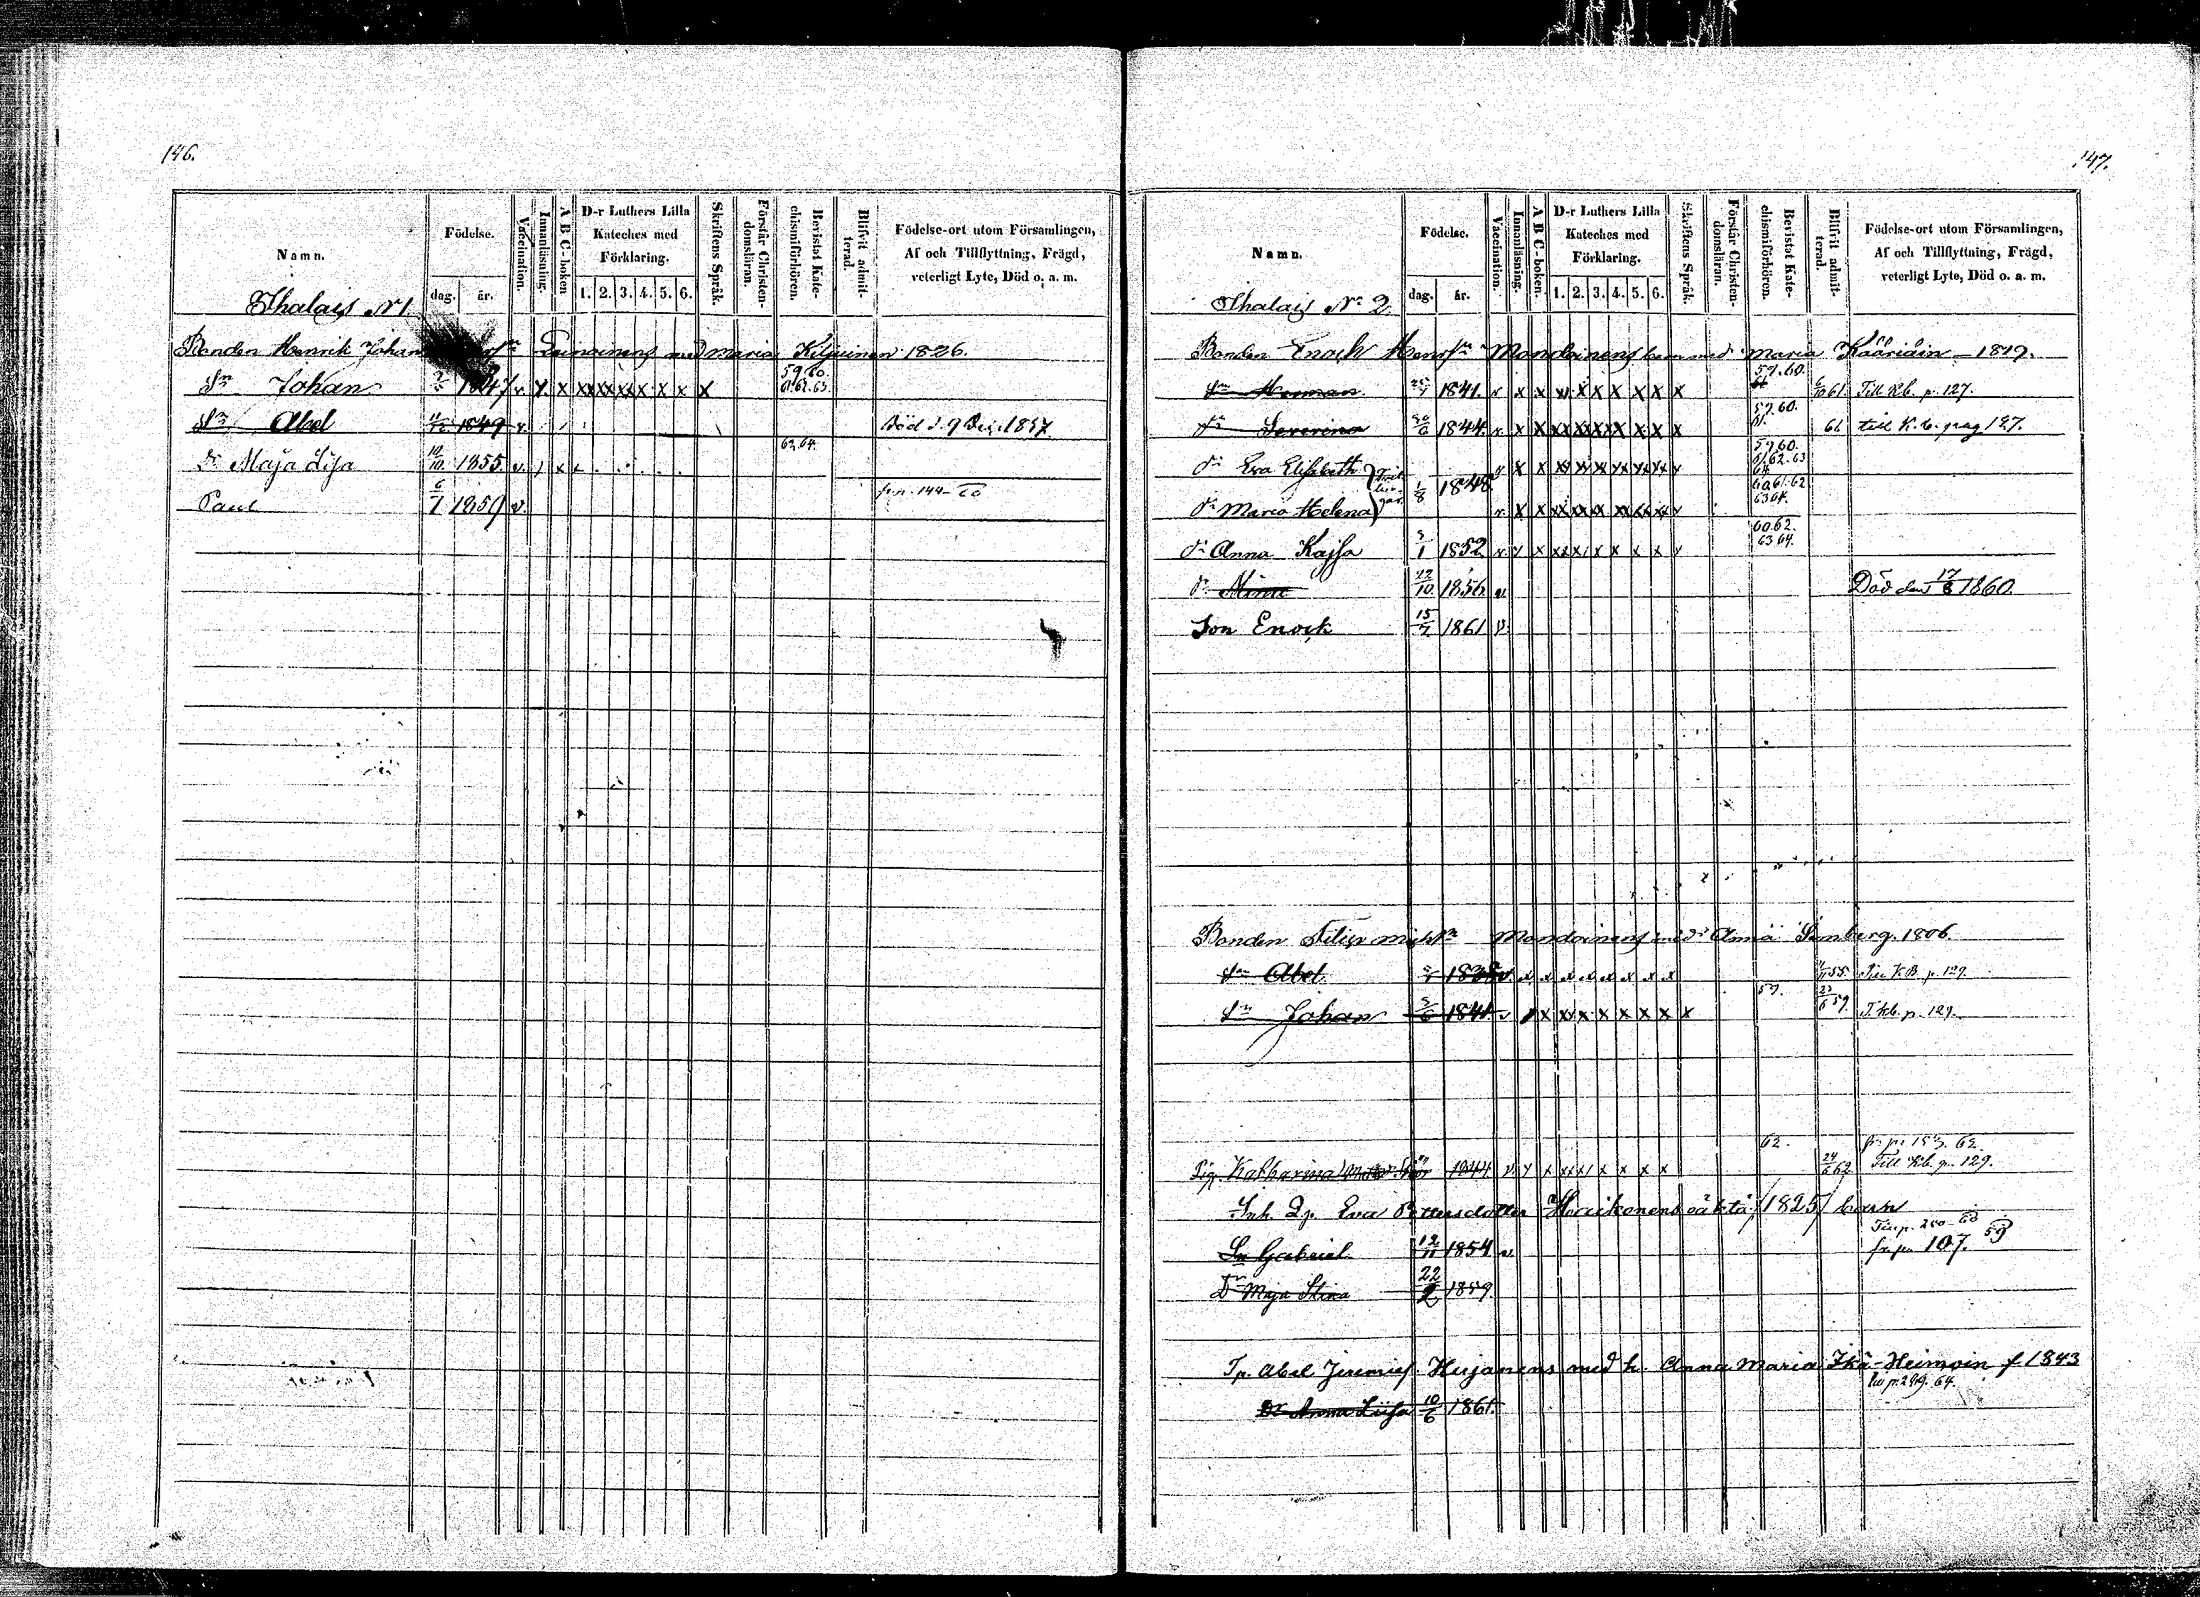 146.
Namn.
Födelse.
dag.
år.
Vaccination.
Innanläsning.
A B C-boken
D-r Luthers Lilla
Kateches med
Förklaring.
1. 2. 3. 4. 5. 6.
Skriftens Språk.
Förstår Christen-
domsläran.
Bevistat Kate-
chismiförhören.
Blifvit admit-
terad.
Födelse-ort utom Församlingen,
Af och Tillflyttning, Frägd,
veterligt Lyte, Död o. a. m.
Ihalais N 1.
Bonden Henrik Johan med Maria Kiljuinen 1826.
Sn Johan 1847 v. x x x x x x x x x x 59.60. 61.62.63.
Sn Abel 1849 v. Död d. 9 Dec. 1857
Dr Maja Lisa 10/10. 1855. v. 63.64.
Paul 6/7 1859 v. fr. p. 144-60
147.
Namn.
Födelse.
dag.
år.
Vaccination.
Innanläsning.
A B C-boken.
D-r Luthers Lilla
Kateches med
Förklaring.
1. 2. 3. 4. 5. 6.
Skriftens Språk.
Förstår Christen-
domsläran.
Bevistat Kate-
chismiförhören.
Blifvit admit-
terad.
Födelse-ort utom Församlingen,
Af och Tillflyttning, Frägd,
veterligt Lyte, Död o. a. m.
Ihalais No 2.
Bonden Enoch Henrsn Mondoinens barn med Maria Kääriäin 1819.
Sn Herman 1841. v x x x x x x x x x 59.60. 61 61 Till Kb. p. 127.
dr Severina 20/6 1844. v x x x x x x x x x 59.60. 61. 61 till K.b. pag 127.
dr Eva Elisabeth v x x x x x x x x 59.60. 61.62.63 64
1/8 1848.
dr Maria Helena v x x x x x x x x 60.61.62 63.64.
dr Anna Kajsa 3/1 1852 v x x x x x x x 60.62. 63.64.
dr Mina 22/10 1856 v Död den 17/8 1860.
Son Enock 15/7 1861 v.
Bonden Filip Michsn Mondoinens med Anna Limberg. 1806.
Sn Abel 1838 v. x x x x x x x x 55. Till K.B. p. 129.
Sn Johan 1841. v x x x x x x x x 59. 23/6 59. T. kb. p. 129.
Pig. Katharina 1844 v x x x x x x x 62. 24/6 62 fr. p. 153. 62. Till Kb. p. 129.
Inh. Qp. Eva Pettersdotter oäkta /1825/ barn
Sn Gabriel 12/11 1854 v fr. p. 107. 59
Dr Maja Stina 22/2 1859.
Tp. Abel Jeremiaf. Hujanens med h. Anna Maria Ikä-Heimoin f 1843
Dr Anna Liisa 10/6 1861.